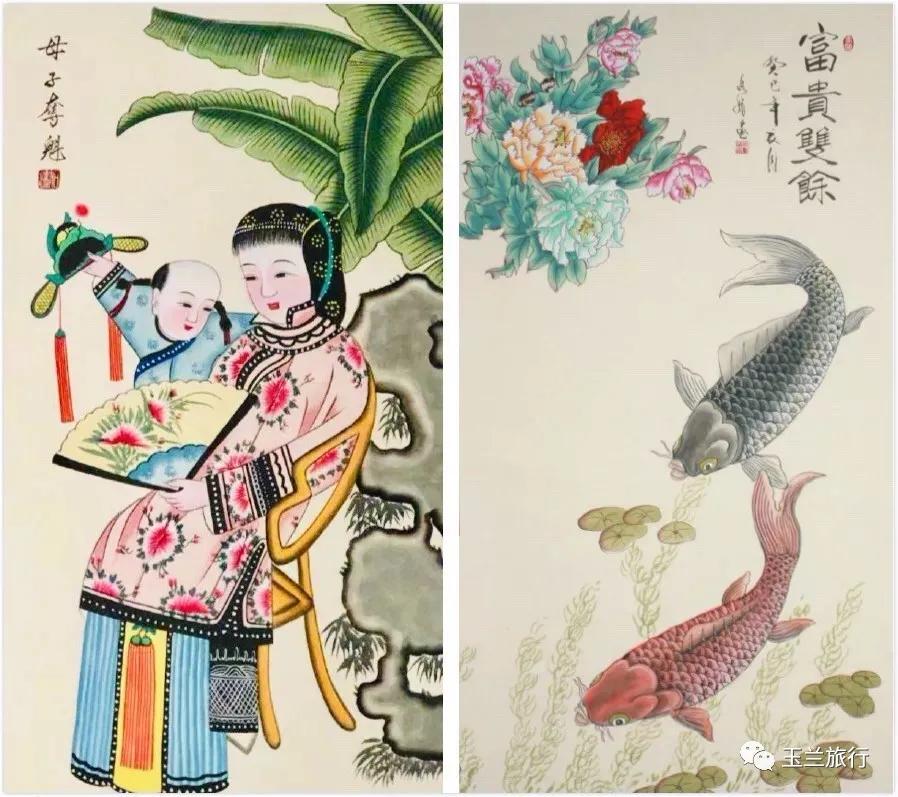 母子奪魁
富貴雙餘
癸巳年
玉兰旅行